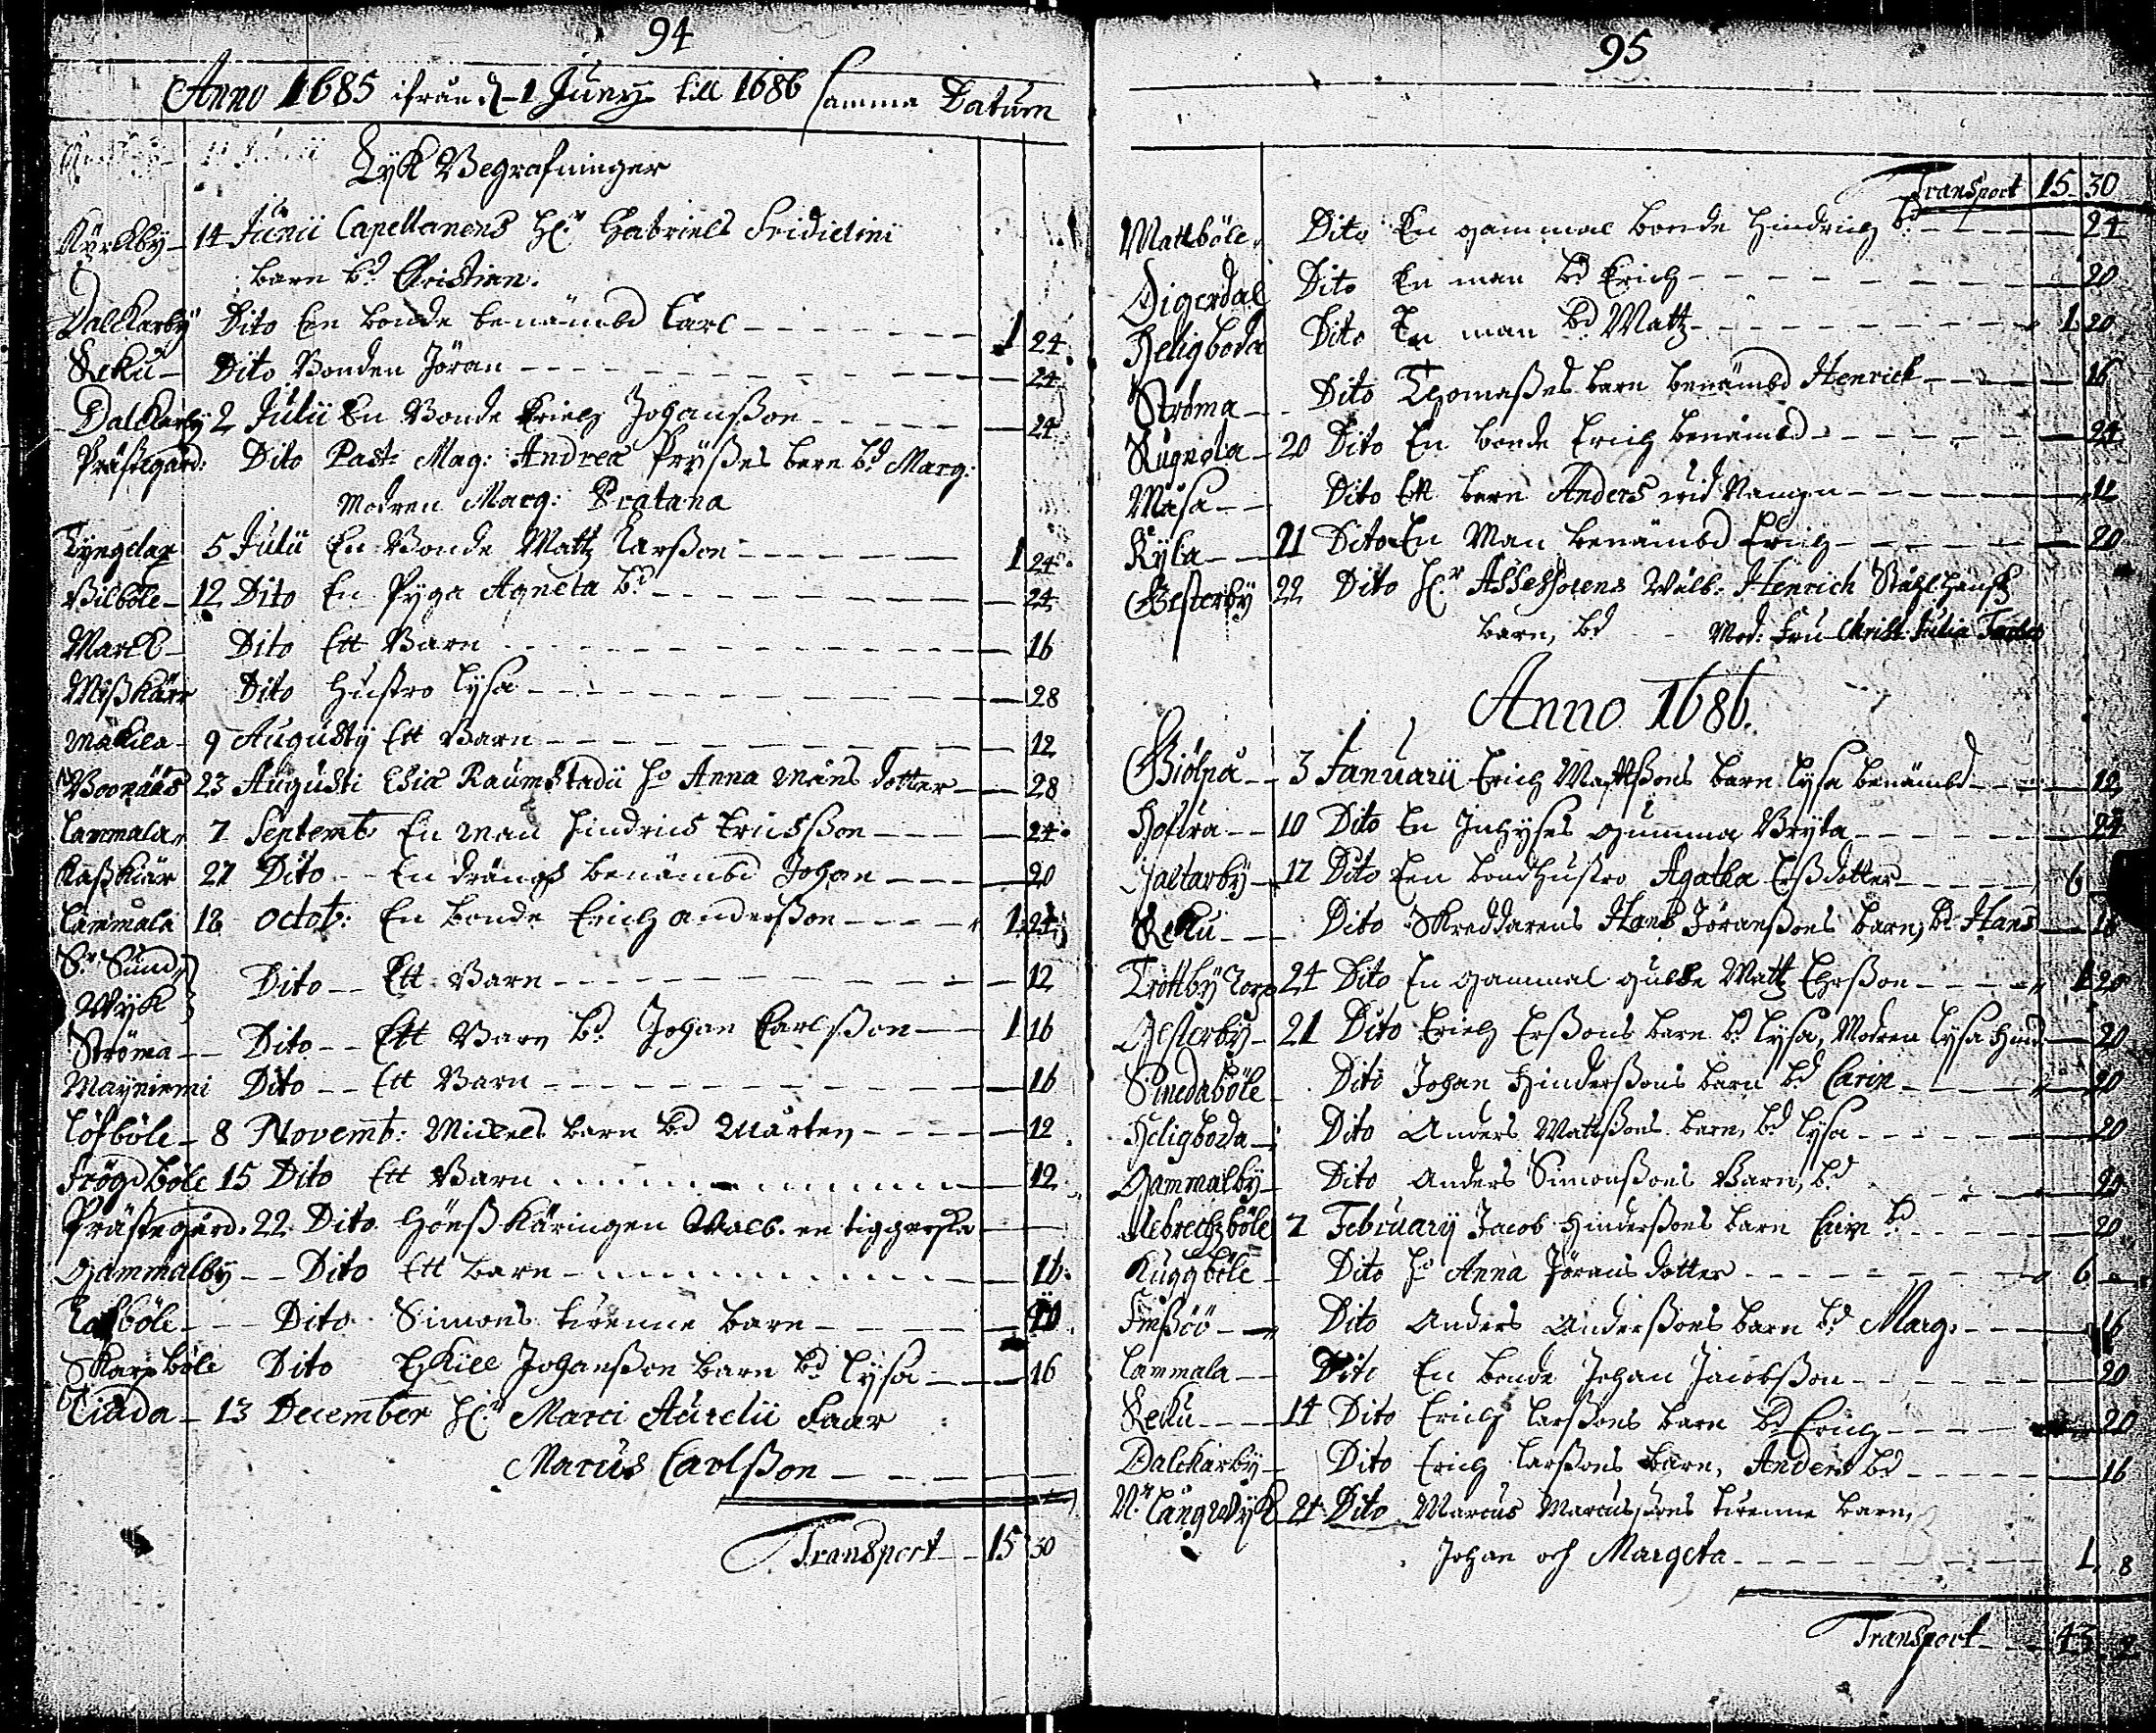 94
Anno 1685 ifrån d. 1 Juny till 1686 samma Datum
Lyk Begrafninger
Kyrkby - 14 Junii Capellanens Hr Gabriels Fidicini
barn bd Christian.
Dalkarby Dito En bonde benämbd Carl - 1 24
Reku - Dito Bonden Jöran - 24
Dalkarby 2 Julii En Bonde Erich Johanßon - 24
Prästegård: Dito Past: Mag: Andreæ Prÿßes barn bd Marg:
Modren Marg: Pratana
5 Julii En Bonde Mattz Larßon - 1 24
Bilböle - 12 Dito En Pyga Agneta bd - 24
Dito Ett Barn - 16
Mißkärr Dito Hustro Lysa - 28
Mäkilä - 9 Augusty Ett Barn - 12
23 Augusti Raumstadii ho Anna Måns dotter - 28
Lammala 7 Septemb: En Man Hindrich Erichsßon - 24
Kaßkiär 27 Dito - En dräng benämbd Johan - 20
Lammala 18 Octob: En bonde Erich Anderßon - 1 24
Sr Sund
Wyk } Dito - Ett Barn - 12
Ströma - Dito - Ett Barn bd Johan Carlßon - 1 16
Mayniemi Dito - Ett Barn - 16
Löfböle - 8 Novemb: Mickels barn bd Mårten - 12
Frögdböle 15 Dito Ett Barn - 12
Prästegård. 22 Dito Hönßkäringen Walb. en tiggerska -
Gammalby - Dito Ett barn - 16
Dito Simons twenne barn -
Skarpböle Dito Eskill Johanßon barn bd Lysa - 16
13 December Hr Marci Aurelii Faar
Marcus Carlßon -
Transport - 15 30
95
Transport 15 30
Mattböle Dito En gammal bonde Hindrich bd - 24
Digerdal Dito En man bd Erich - 20
Heligboda Dito En man bd Mattz - 1 20
Ströma - Dito Thomaßes barn benämbd Henrich - 16
Rugnola - 20 Dito En bonde Erich benämbd - 24
Måsa - Dito Ett barn Anders wid Namgn - 12
Kyla - 21 Dito En Man benämbd Erich - 20
Westerby 22 Dito Hr Assessorens Wälb: Henrich Stählhansk
barn, bd - Mod: Fru Christ: Julia
Anno 1686.
Giölpå - 3 Januarii Erich Mattßons barn Lysa benämbd - 12
10 Dito En Inhyses gumma Bryta - 24
Galtarby - 17 Dito Een bondhustro Agatha Erßdotter - 6
Reku - Dito Skreddarens Hans Jöranßons barn, bd Hans -
Trottby Torp 24 Dito En gammal gubbe Mattz Erßon - 1 20
Gesterby - 21 Dito Erich Erßons barn bd Lysa, Modren Lysa - 20
Pinedaböle - Dito Johan Hinderßons barn bd Carin - 20
Heligboda - Dito Anders Mattßons barn, bd Lysa - 20
Gammalby - Dito Anders Simonßons Barn, bd - 20
Mebrechtböle 7 February Jacob Hinderßons barn Carin bd - 20
Kuggböle - Dito ho Anna Jörans dotter - 6
Finßiö - Dito Anders Anderßons barn bd Marg: - 16
Lammala - Dito En bonde Johan Jacobßon - 20
Reku - 14 Dito Erich Larßons barn bd Erich - 20
Dalckarby - Dito Erich Larßons barn, Anders bd - 16
Nr Långwyk 21 Dito Marcus Marcusßons twenne barn,
Johan och Margeta - 1 8
Transport - 43 2